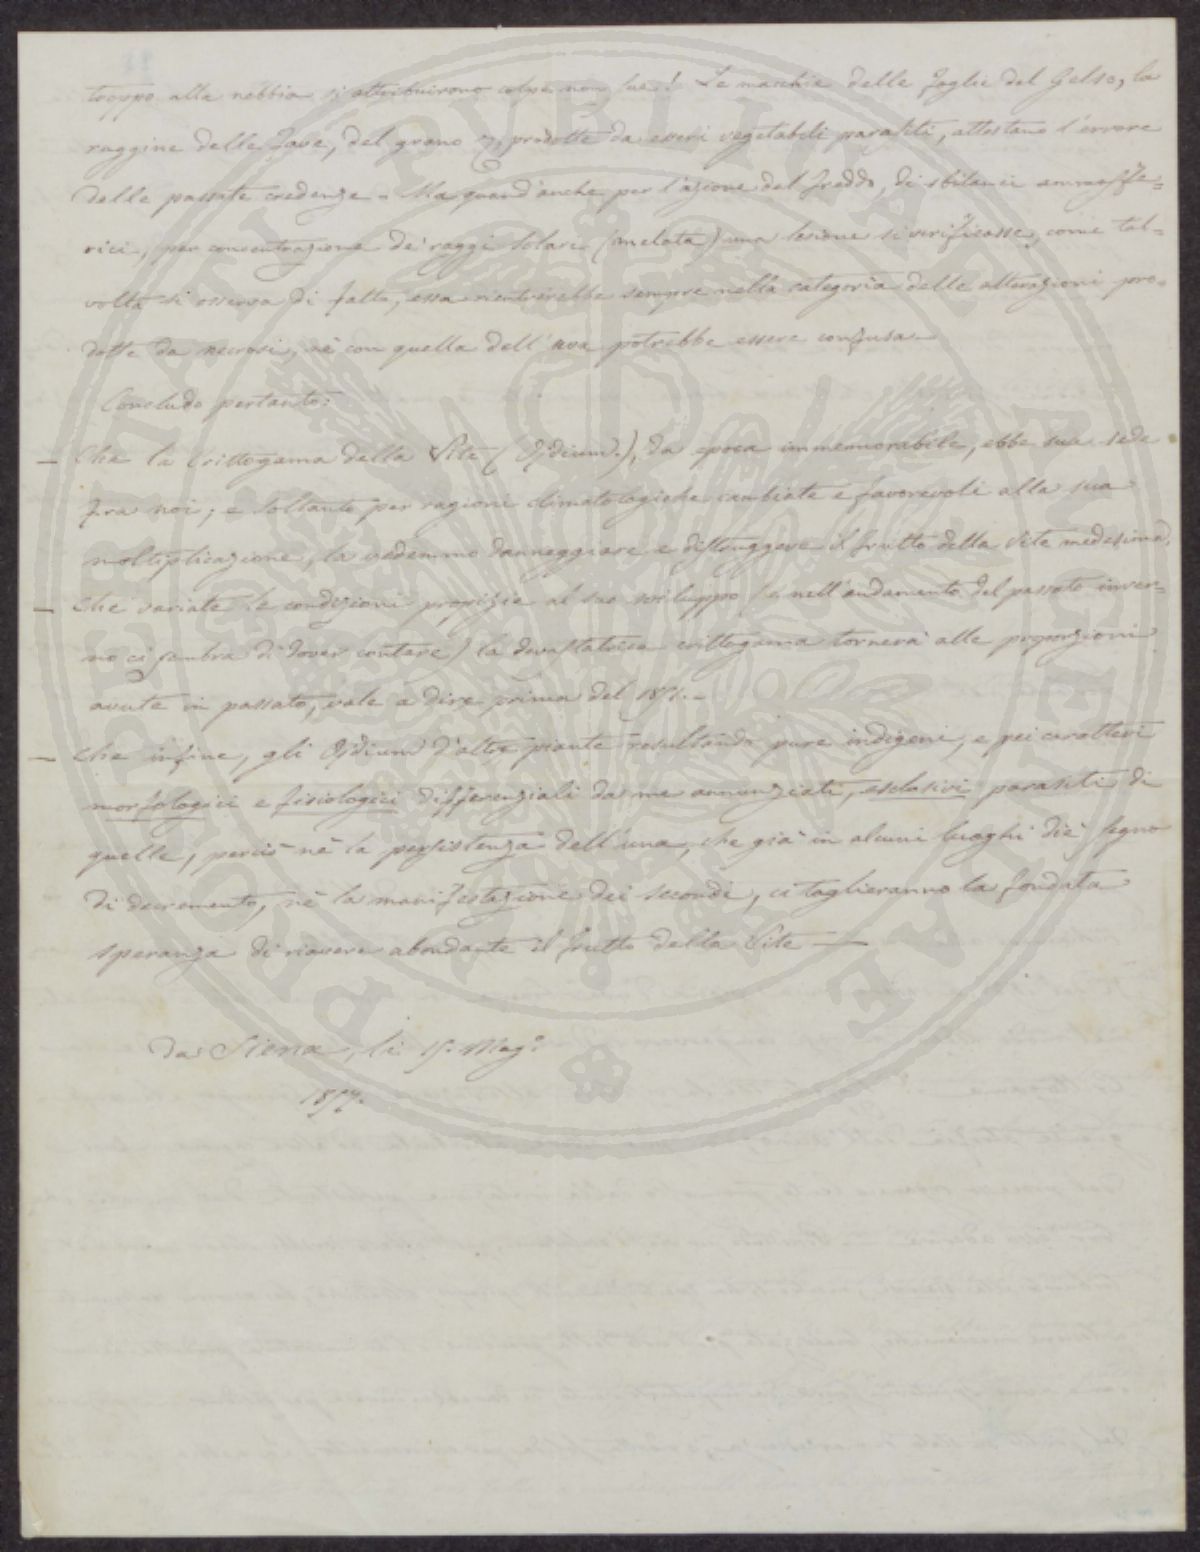 troppo alla nebbia si attribuirono colpe non sue! Le macchie delle foglie del Gelso, la
ruggine delle fave, del grano &, prodotte da esseri vegetabili parasiti, attestano l'errore
delle passate credenze - Ma quand'anche per l'azione del freddo, di sbilanci atmosfe=
rici, per concentrazione de' raggi solari (melata) una lesione si verificasse, come tal=
volta si osserva di fatto, essa rientrerebbe sempre nella categoria delle alterazioni pro=
dotte da necrosi, nè con quella dell'uva potrebbe essere confusa -
Concludo pertanto:
- Che la Crittogama della Vite (Ojdium.), da epoca immemorabile, ebbe sua sede
fra noi; e soltanto per ragioni climatologiche cambiate e favorevoli alla sua
moltiplicazione, la vedemmo danneggiare e distruggere il frutto della Vite medesima.
- Che variate le condizioni propizie al suo sviluppo (e nell'andamento del passato inver=
no ci sembra di dover contare) la devastatrice crittogama tornerà alle proporzioni
avute in passato, vale a dire prima del 1851. -
- Che infine, gli Ojdium d'altre piante resultando pure indigeni, e pei caratteri
morfologici e fisiologici differenziali da me annunziati, esclusivi parasiti di
quelle, perciò nè la persistenza dell'una, che già in alcuni luoghi diè segno
di decremento, nè la manifestazione dei secondi, ci toglieranno la fondata
speranza di riavere abondante il frutto della Vite —
Da Siena, li 15. Mag.o
1857.
PROSPERITATI PVBLICAE AVGENDAE